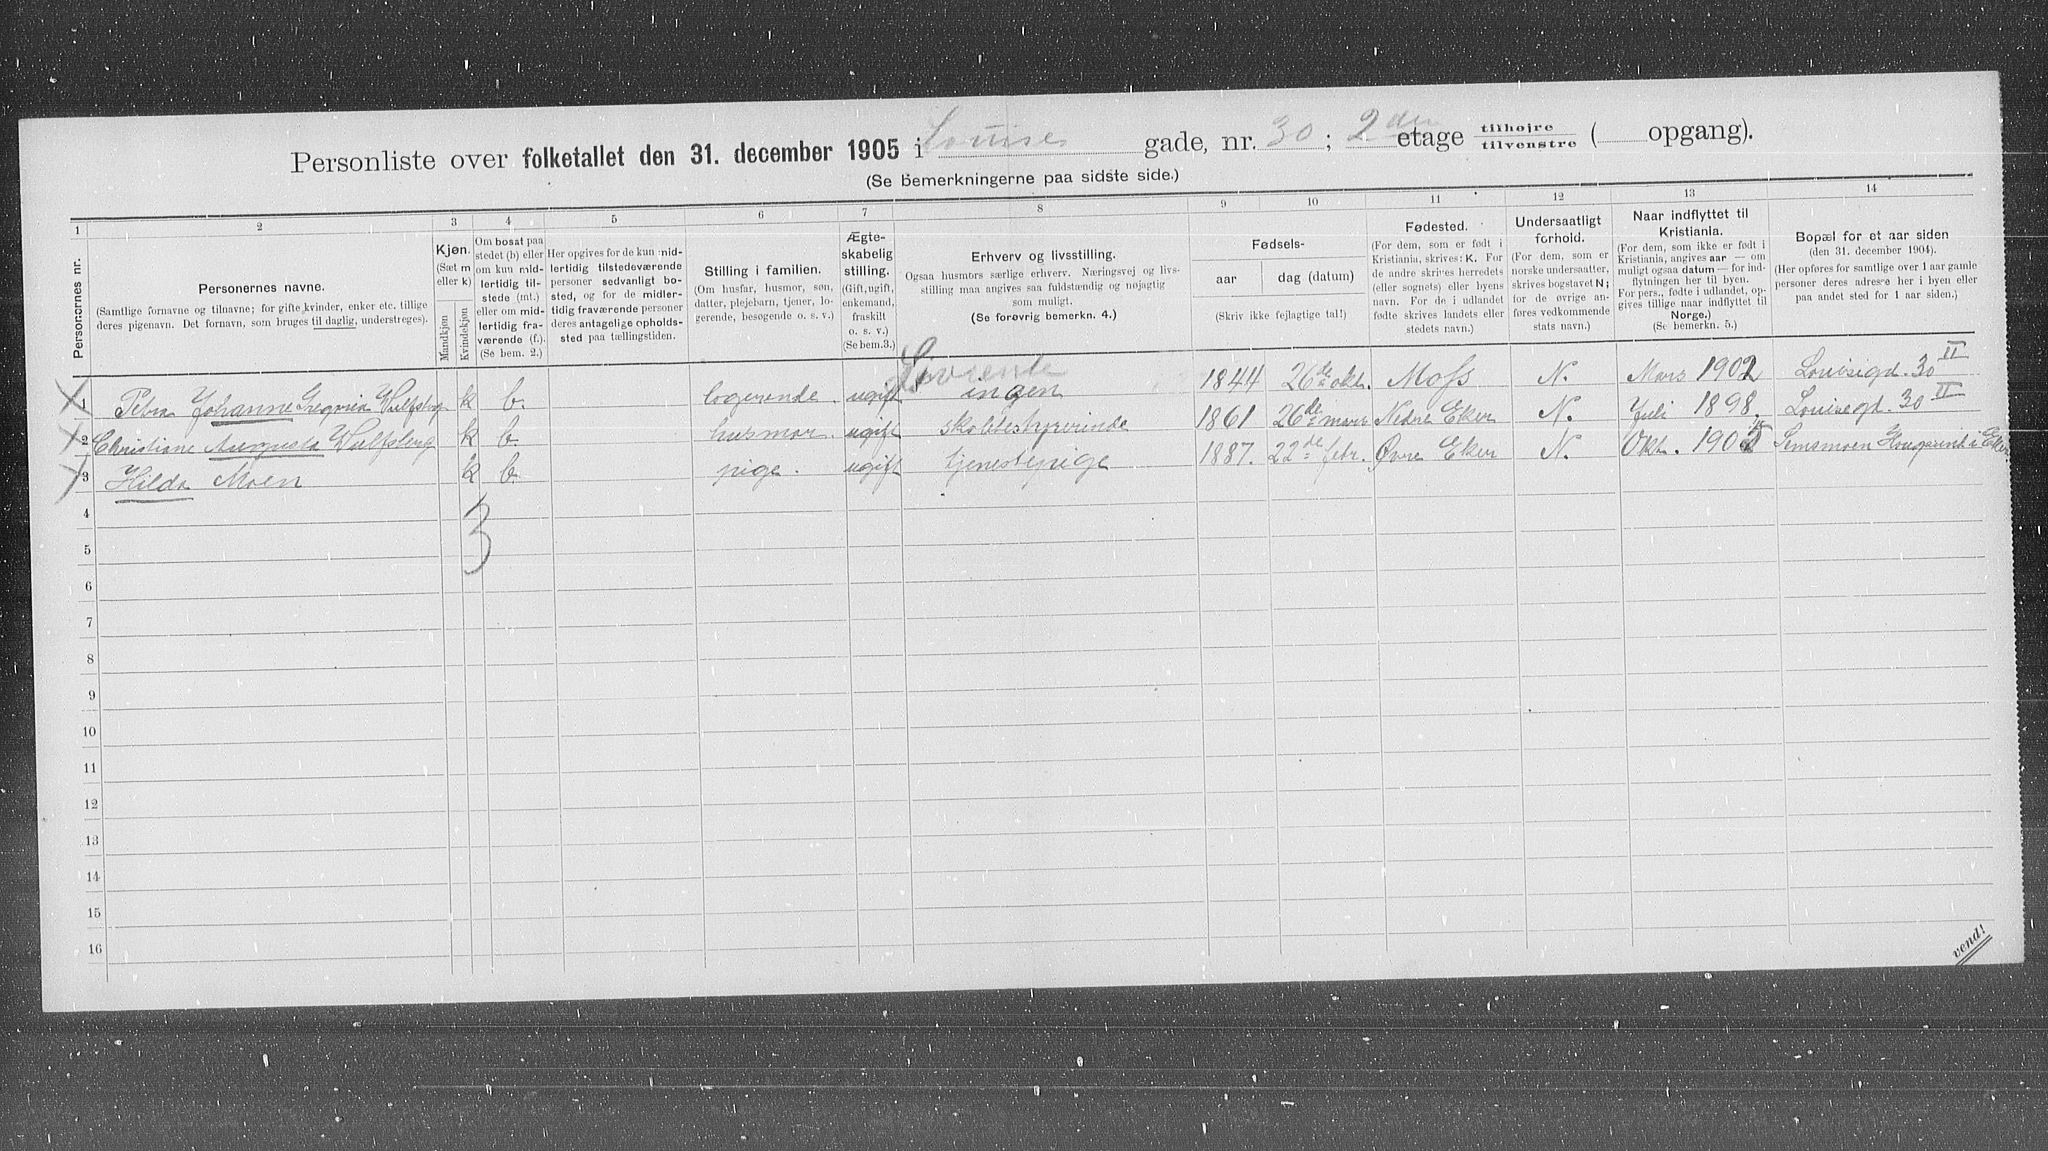 Personliste over folketallet den 31. december 1905 i Louises gade, nr. 30; 2den etage tilhøjre tilvenstre ( opgang).
(Se bemerkningerne paa sidste side.)
1 2 3 4 5 6 7 8 9 10 11 12 13 14
Personernes nr.
Personernes navne.
(Samtlige fornavne og tilnavne; for gifte kvinder, enker etc. tillige
deres pigenavn. Det fornavn, som bruges til daglig, understreges).
Kjøn.
(Sæt m
eller k)
Mandkjøn
Kvindekjøn
Om bosat paa
stedet (b) eller
om kun mid-
lertidig til-
stede (mt.)
eller om mid-
lertidig fra-
værende (f.).
(Se bem. 2.)
Her opgives for de kun mid-
lertidig tilstedeværende
personer sedvanligt bo-
sted, og for de midler-
tidig fraværende personer
deres antagelige opholds-
sted paa tællingstiden.
Stilling i familien.
(Om husfar, husmor, søn,
datter, plejebarn, tjener, lo-
gerende, besøgende o. s. v.)
Ægte-
skabelig
stilling.
(Gift, ugift,
enkemand,
fraskilt
o. s. v.)
(Se bem.3.)
Erhverv og livsstilling.
Ogsaa husmors særlige erhverv. Næringsvej og livs-
stilling maa angives saa fuldstændig og nøjagtig
som muligt.
(Se forøvrig bemerkn. 4.)
Fødsels-
aar dag (datum)
(Skriv ikke fejlagtige tal!)
Fødested.
(For dem, som er født i
Kristiania, skrives: K. For
de andre skrives herredets
(eller sognets) eller byens
navn. For de i udlandet
fødte skrives landets eller
stedets navn.)
Undersaatligt
forhold.
(For dem, som er
norske undersaatter,
skrives bogstavet N;
for de øvrige an-
føres vedkommende
stats navn.)
Naar indflyttet til
Kristiania.
(For dem, som ikke er født i
Kristiania, angives aar — om
muligt ogsaa datum — for ind-
flytningen her til byen.
For pers., fødte i udlandet, op-
gives tillige naar indflyttet til
Norge.)
(Se bemerkn. 5.)
Bopæl for et aar siden
(den 31. december 1904).
(Her opføres for samtlige over 1 aar gamle
personer deres adresse her i byen eller
paa andet sted for 1 aar siden.)
1 Petra Johanne Gregoria Wulfsberg k b. logerende ugift Livrente ingen 1844 26de okt. Moss N. Mars 1902 Louisegd. 30 II
2 Christiane Augusta Wulfsberg k b husmor. ugift skolebestyrerinde 1861 26de mars Nedre Eker N. Juli 1898. Louisegd. 30 II
3 Hilda Moen k b pige. ugift tjenestepige 1887. 22de febr. Øvre Eker N. Okt. 1905 Semsmoen Hougsund i Eker
3
4
5
6
7
8
9
10
11
12
13
14
15
16
vend!